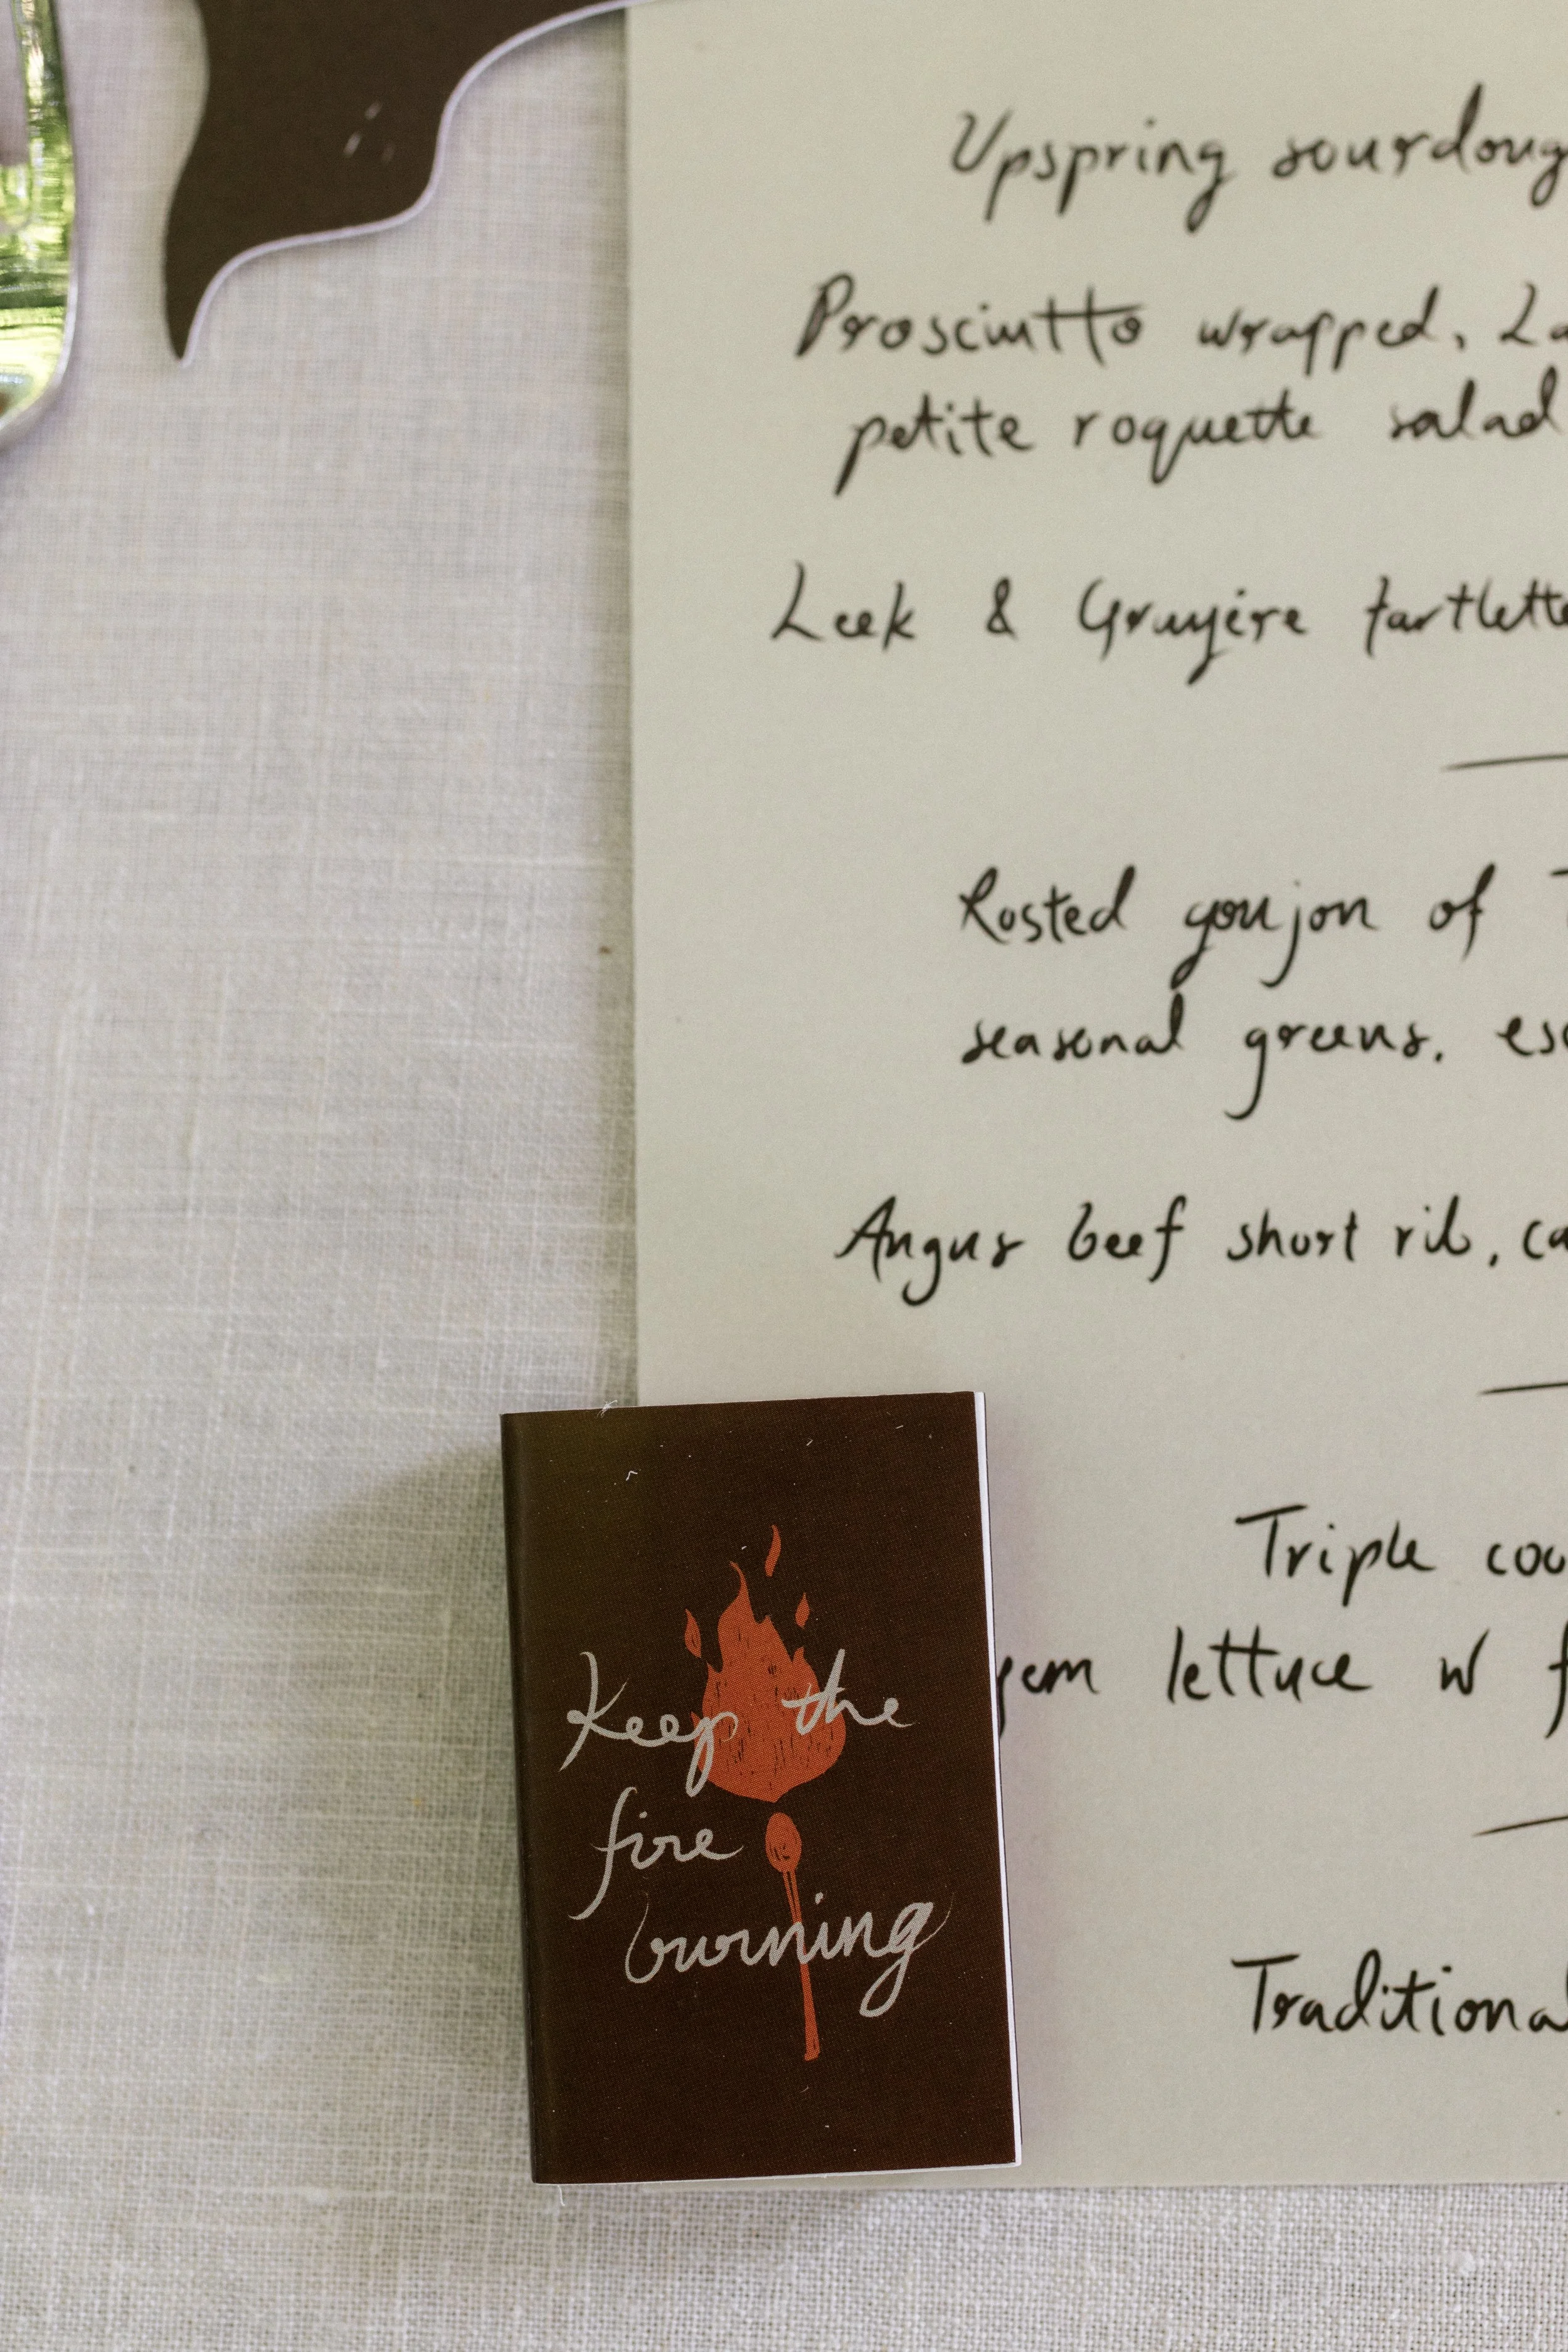 Upspring sourdoug
Prosciutto wrapped, La
petite roquette salad
Leek & Gruyère tartlette
Rosted goujon of T
seasonal greens, esc
Angus beef short rib, ca
Triple coo
gem lettuce w f
Traditiona
Keep the
fire
burning